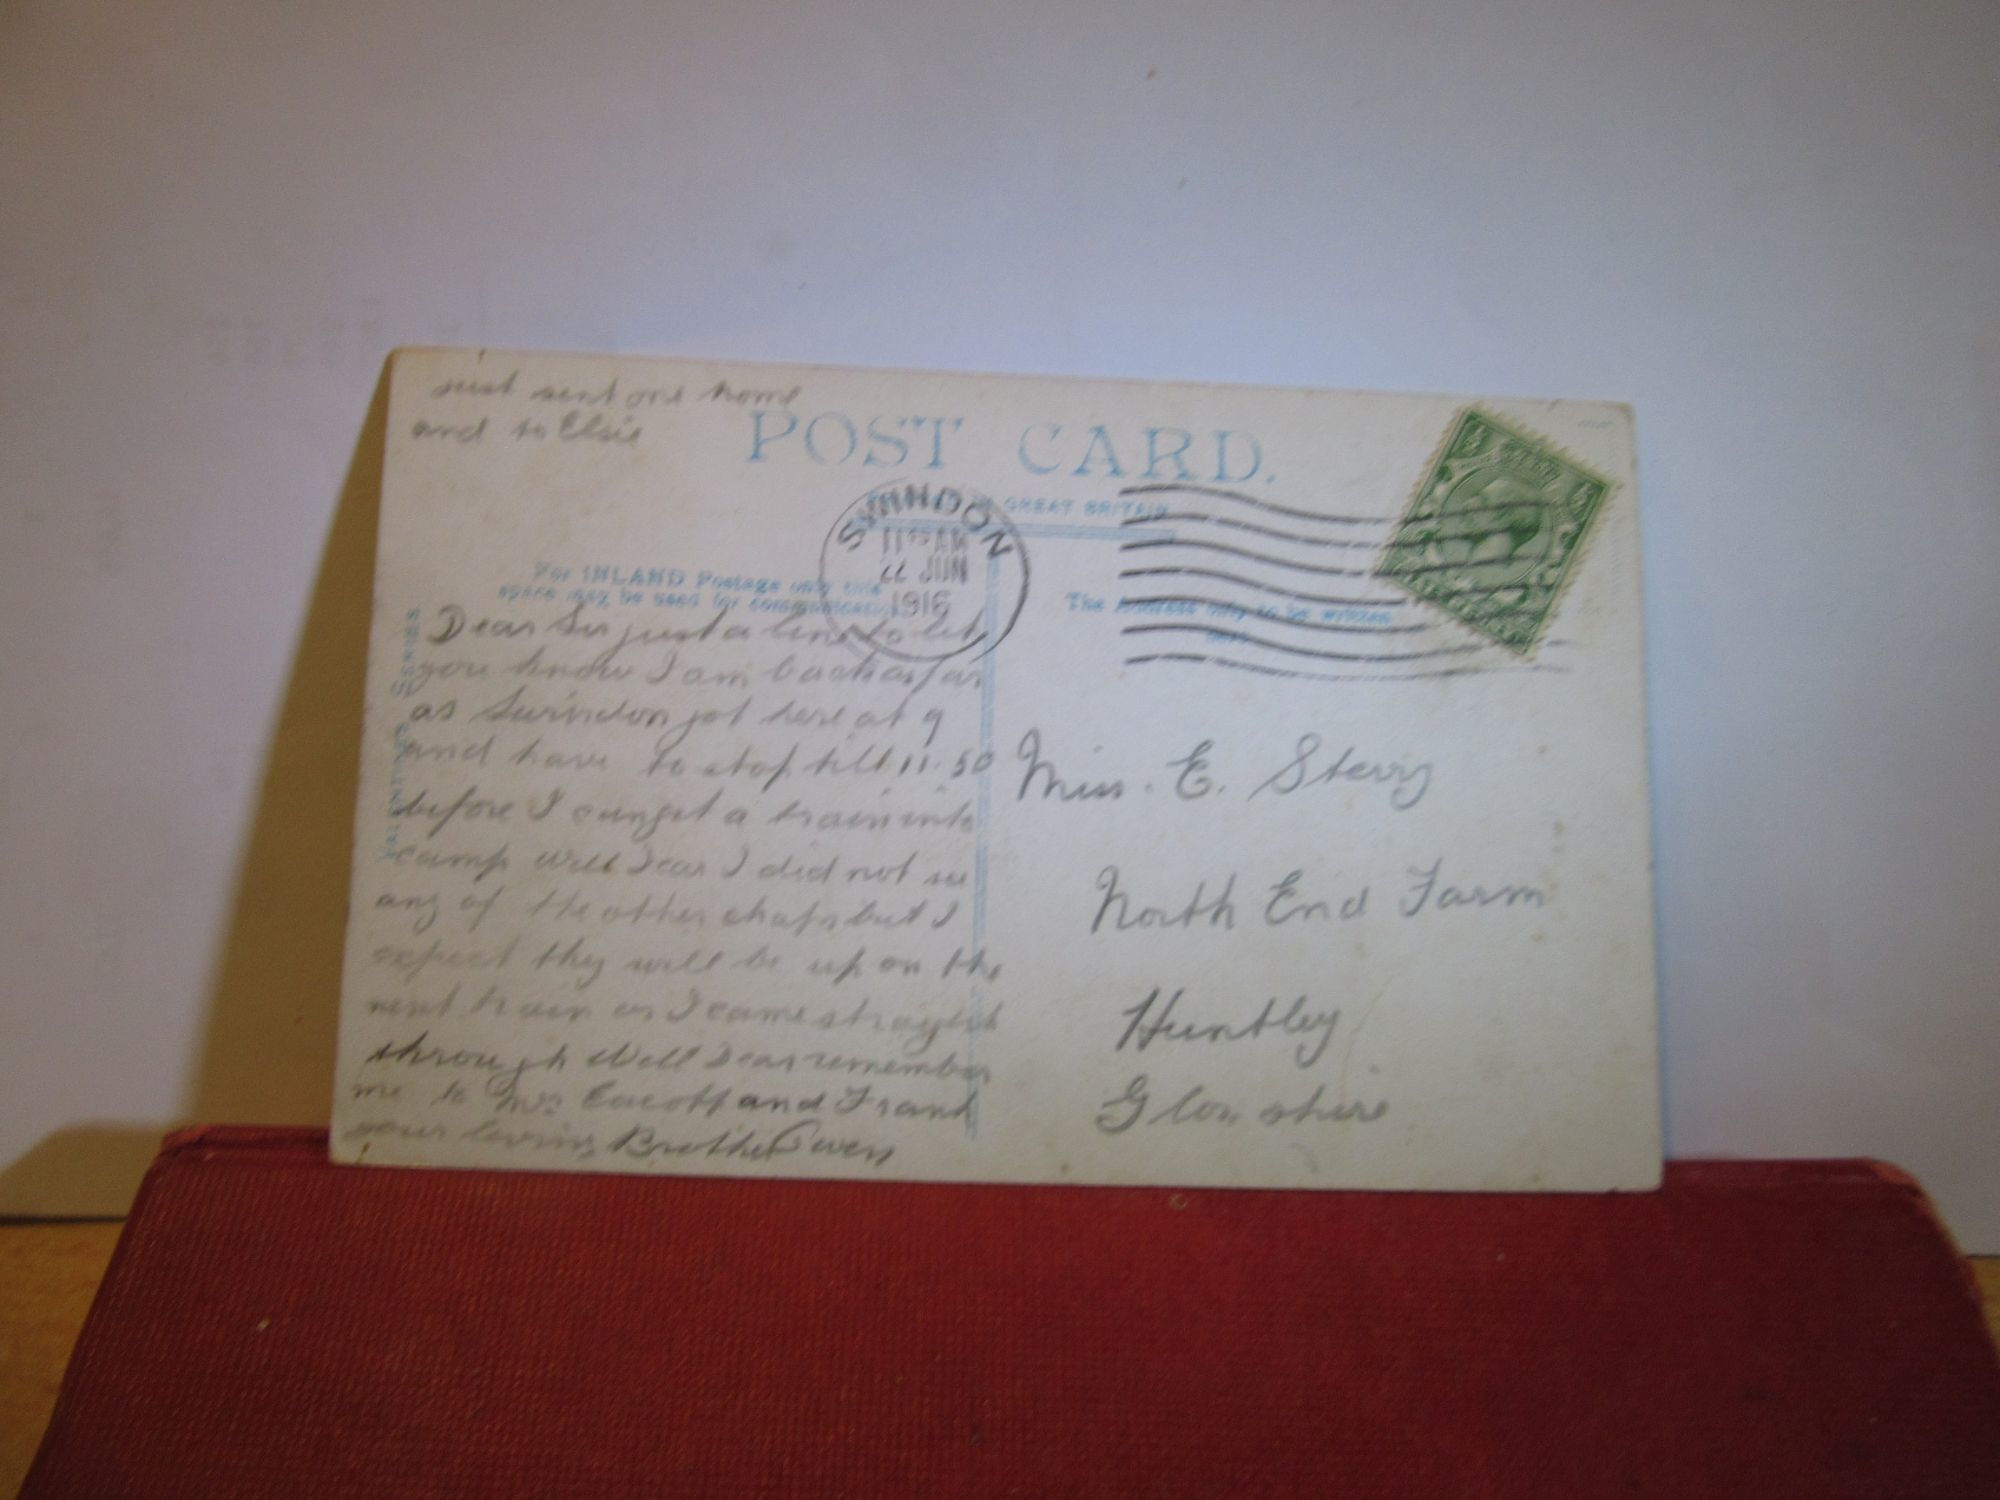 just sent one home
and to Elsie
POST CARD.
GREAT BRITAIN
SWINDON
1916
For INLAND Postage only this
space may be used for communication
The Address only to be written
VALENTINE'S SERIES
Dear Sis just a line to let
you know I am back as far
as Swindon got here at 9
and have to stop till 11.50
before I can get a train into
camp well Dear I did not see
any of the other chaps but I
expect they will be up on the
next train as I came straight
through Well Dear remember
me to Mrs and Frank
your loving Brother Owen
Miss. E. Sterry
North End Farm
Huntley
Glou shire